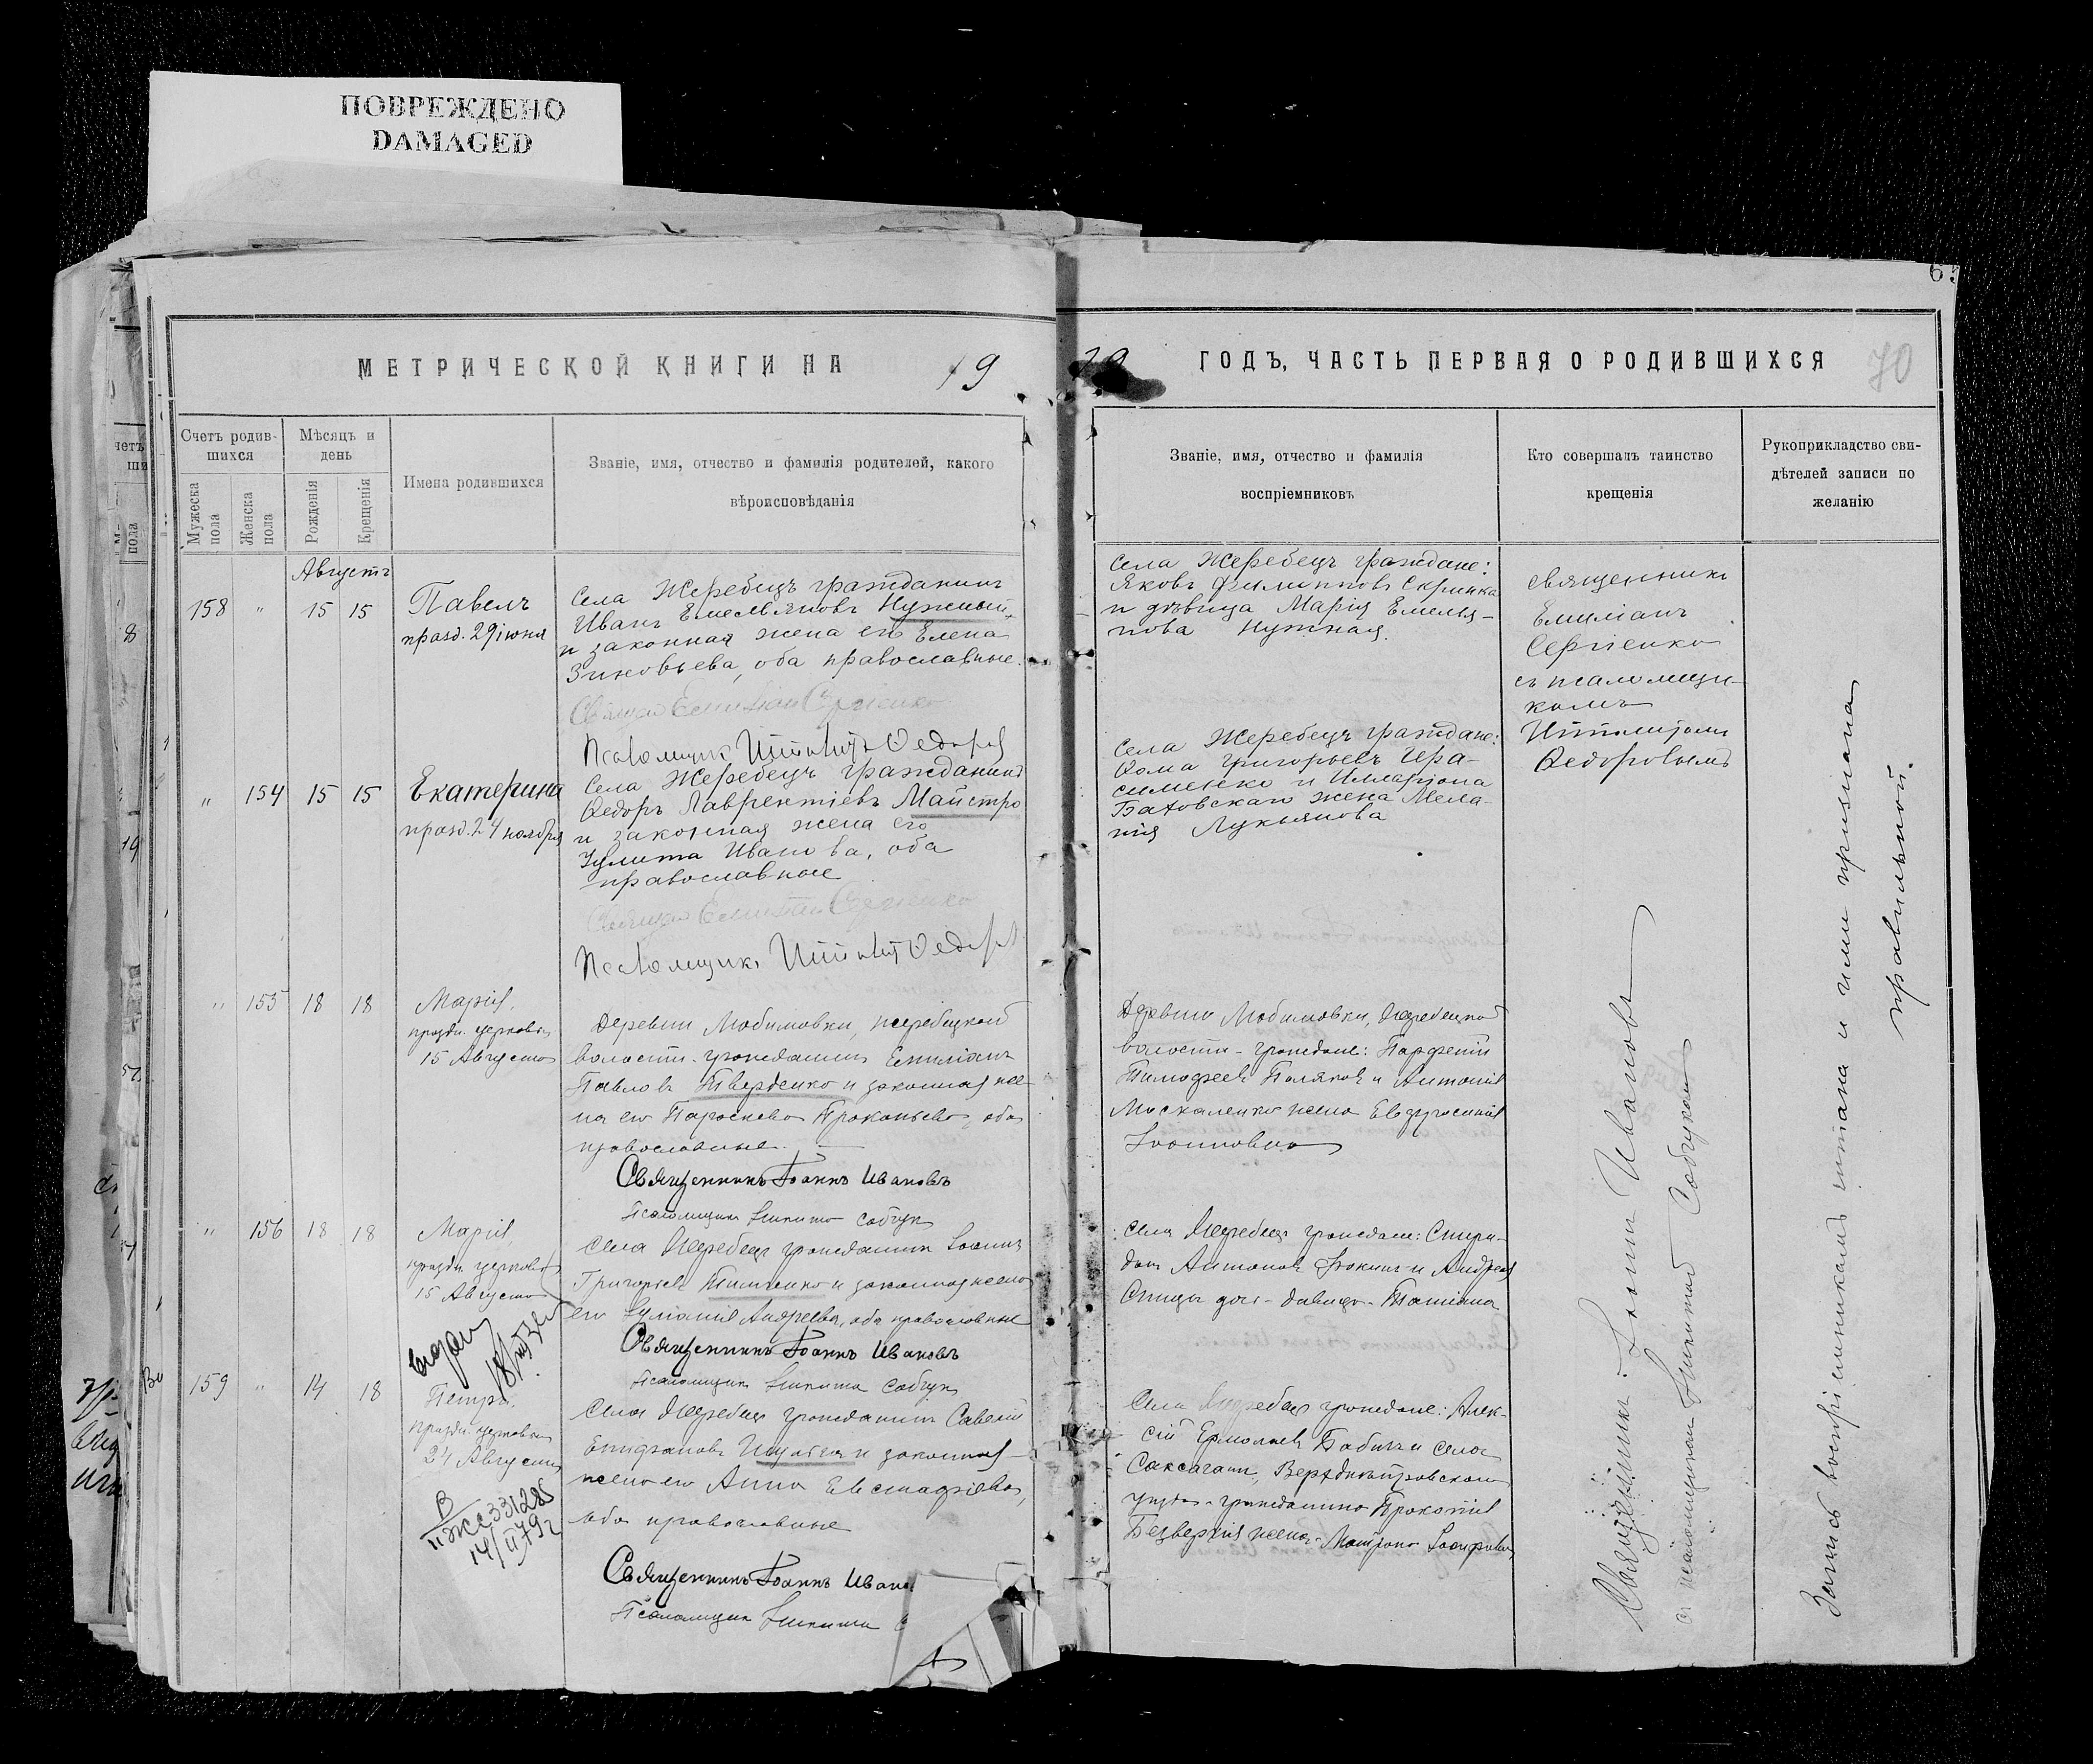 ПОВРЕЖДЕНО
DAMAGED
МЕТРИЧЕСКОЙ КНИГИ НА 19
19 ГОДЪ, ЧАСТЬ ПЕРВАЯ О РОДИВШИХСЯ 70
Счетъ родив-
шихся
Мужеска
пола
Женска
пола
Мѣсяцъ и
день
Рожденія
Крещенія
Имена родившихся
Званіе, имя, отчество и фамилія родителей, какого
вѣроисповѣданія
Званіе, имя, отчество и фамилія
воспріемниковъ
Кто совершалъ таинство
крещенія
Рукоприкладство сви-
дѣтелей записи по
желанію
Августъ
158 " 15 15
Павелъ
празд. 29 іюня
Села Жеребецъ гражданинъ
Иванъ Емельяновъ Нужный
и законная жена его Елена
Зиновьева, оба православные.
Священ Емиліан Сергіенко
Псаломщик Ипполитъ Ѳедоров
Села Жеребецъ граждане:
Яковъ Филипповъ Скрипка
и дѣвица Марія Емелья-
нова Нужная.
священникъ
Емиліанъ
Сергіенко
съ псаломщи-
комъ
Ипполитомъ
Ѳедоровымъ
" 154 15 15
Екатерина
празд. 24 ноября
Села Жеребецъ гражданинъ
Ѳедоръ Лаврентіевъ Майстро
и законная жена его
Іулита Иванова, оба
православные
Священ Емиліан Сергіенко
Псаломщикъ Ипполит Ѳедоров
Села Жеребецъ граждане:
Ѳома Григорьевъ Гера-
сименко и Илларіона
Батовскаго жена Мела-
нія Лукьянова
" 155 18 18
Марія,
праздн. церковн
15 Августа
Деревни Любимовки, жеребецкой
волости гражданинъ Емиліанъ
Павловъ Тверденко и законная же-
на его Параскева Прокопьева, оба
православные.
Священникъ Іоаннъ Ивановъ
Псаломщикъ Никита Собчук
Деревни Любимовки, Жеребецкой
волости - граждане: Парфеній
Тимофеевъ Поляковъ и Антонія
Москаленко жена Евфросинія
Іоанновна
" 156 18 18
Марія,
праздн. церковн
15 Августа
Села Жеребецъ гражданинъ Іоаннъ
Григорьевъ Тимченко и законная жена
его Іуліанія Андреева, оба православные
Священникъ Іоаннъ Ивановъ
Псаломщикъ Никита Собчук
Села Жеребецъ граждане: Спири-
донъ Антоновъ и Андрея
Спицы дочь - дѣвица - Татіана
159 " 14 18
Петръ.
праздн. церковн
24 Августа
В
II ЖС 331285
14/II 79 г
Села Жеребецъ гражданинъ Савелій
Епифановъ и законная
жена его Анна Евстафіева,
оба православные
Священникъ Іоаннъ Ивано
Псаломщикъ Никита С
Села Жеребецъ граждане: Алек-
сій Ермолаевъ Бабичъ и села
Саксагани, Верхднѣпровскаго
уѣзда - гражданина Прокопія
Безверхія жена Матрона Іосифовна
Священникъ: Іоаннъ Ивановъ
съ псаломщикомъ Никитой Собчукомъ
Запись воспріемникамъ читана и ими признана
правильной.